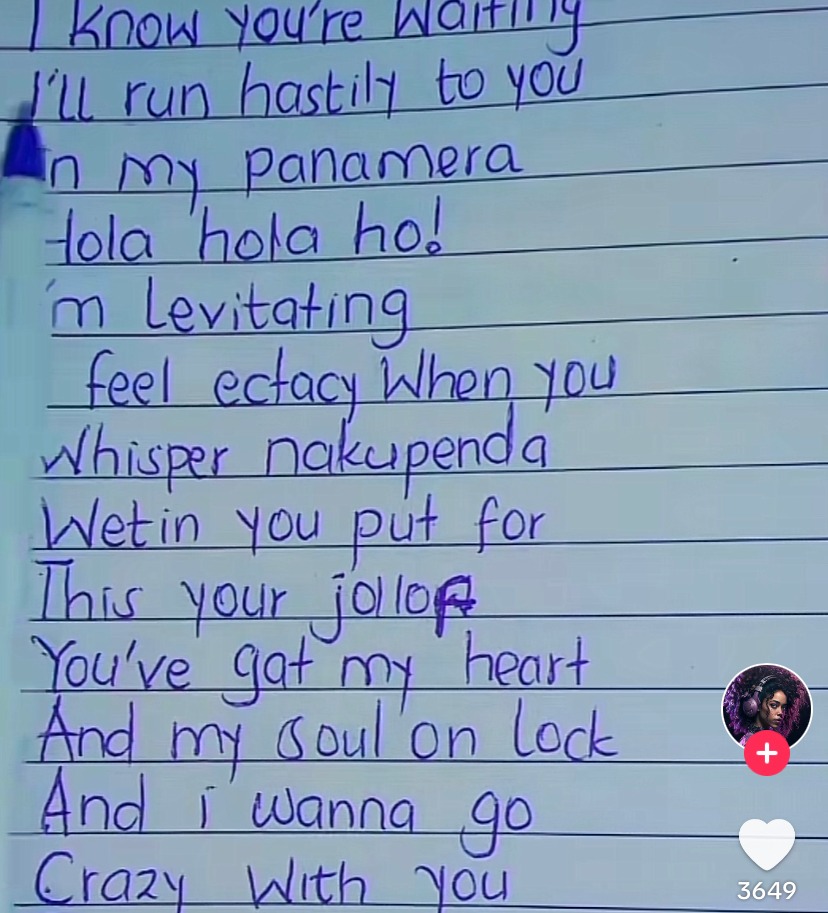 I know you're waiting
I'll run hastily to you
In my panamera
Hola hola ho!
'm Levitating
feel ectacy When you
Whisper nakupenda
Wetin you put for
This your jollof
You've gat my heart
And my soul on lock
And i wanna go
Crazy With you
3649